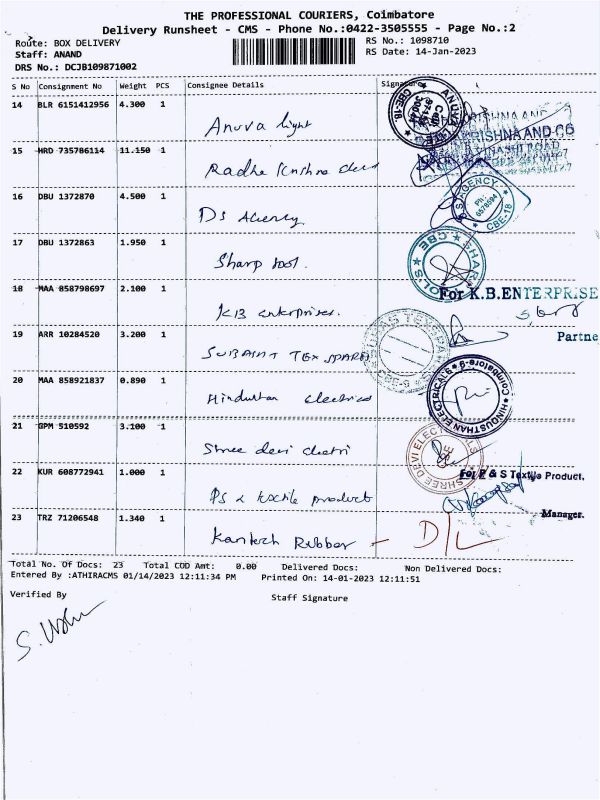 THE PROFESSIONAL COURIERS, Coimbatore
Delivery Runsheet - CMS - Phone No.:0422-3505555 - Page No.:2
Route: BOX DELIVERY
RS No.: 1098710
Staff: ANAND
RS Date: 14-Jan-2023
DRS No.: DCJB109871002
S No Consignment No Weight PCS Consignee Details Signature
14 BLR 6151412956 4.300 1
Anuva light
15 HRD 735786114 11.150 1
KRISHNA AND CO
Radha Krishna
16 DBU 1372870 4.500 1
DS Agency
DS AGENCY Ph: 6576594 CBE-18
17 DBU 1372863 1.950 1
Sharp tool.
SHARP TOOLS CBE
18 MAA 858798697 2.100 1
For K.B.ENTERPRISE
KB enterprises.
Partne
19 ARR 10284520 3.200 1
TEX SPARE
CBE-9
20 MAA 858921837 0.890 1
Hindustan electrics
HINDUSTHAN ELECTRICALS Coimbatore-9
21 GPM 510592 3.100 1
Shree devi
SHREE DEVI
22 KUR 608772941 1.000 1
For P & S Textile Product.
PS & textile product
Manager.
23 TRZ 71206548 1.340 1
Kantech Rubber - D/L
Total No. Of Docs: 23 Total COD Amt: 0.00 Delivered Docs: Non Delivered Docs:
Entered By :ATHIRACMS 01/14/2023 12:11:34 PM Printed On: 14-01-2023 12:11:51
Verified By
Staff Signature